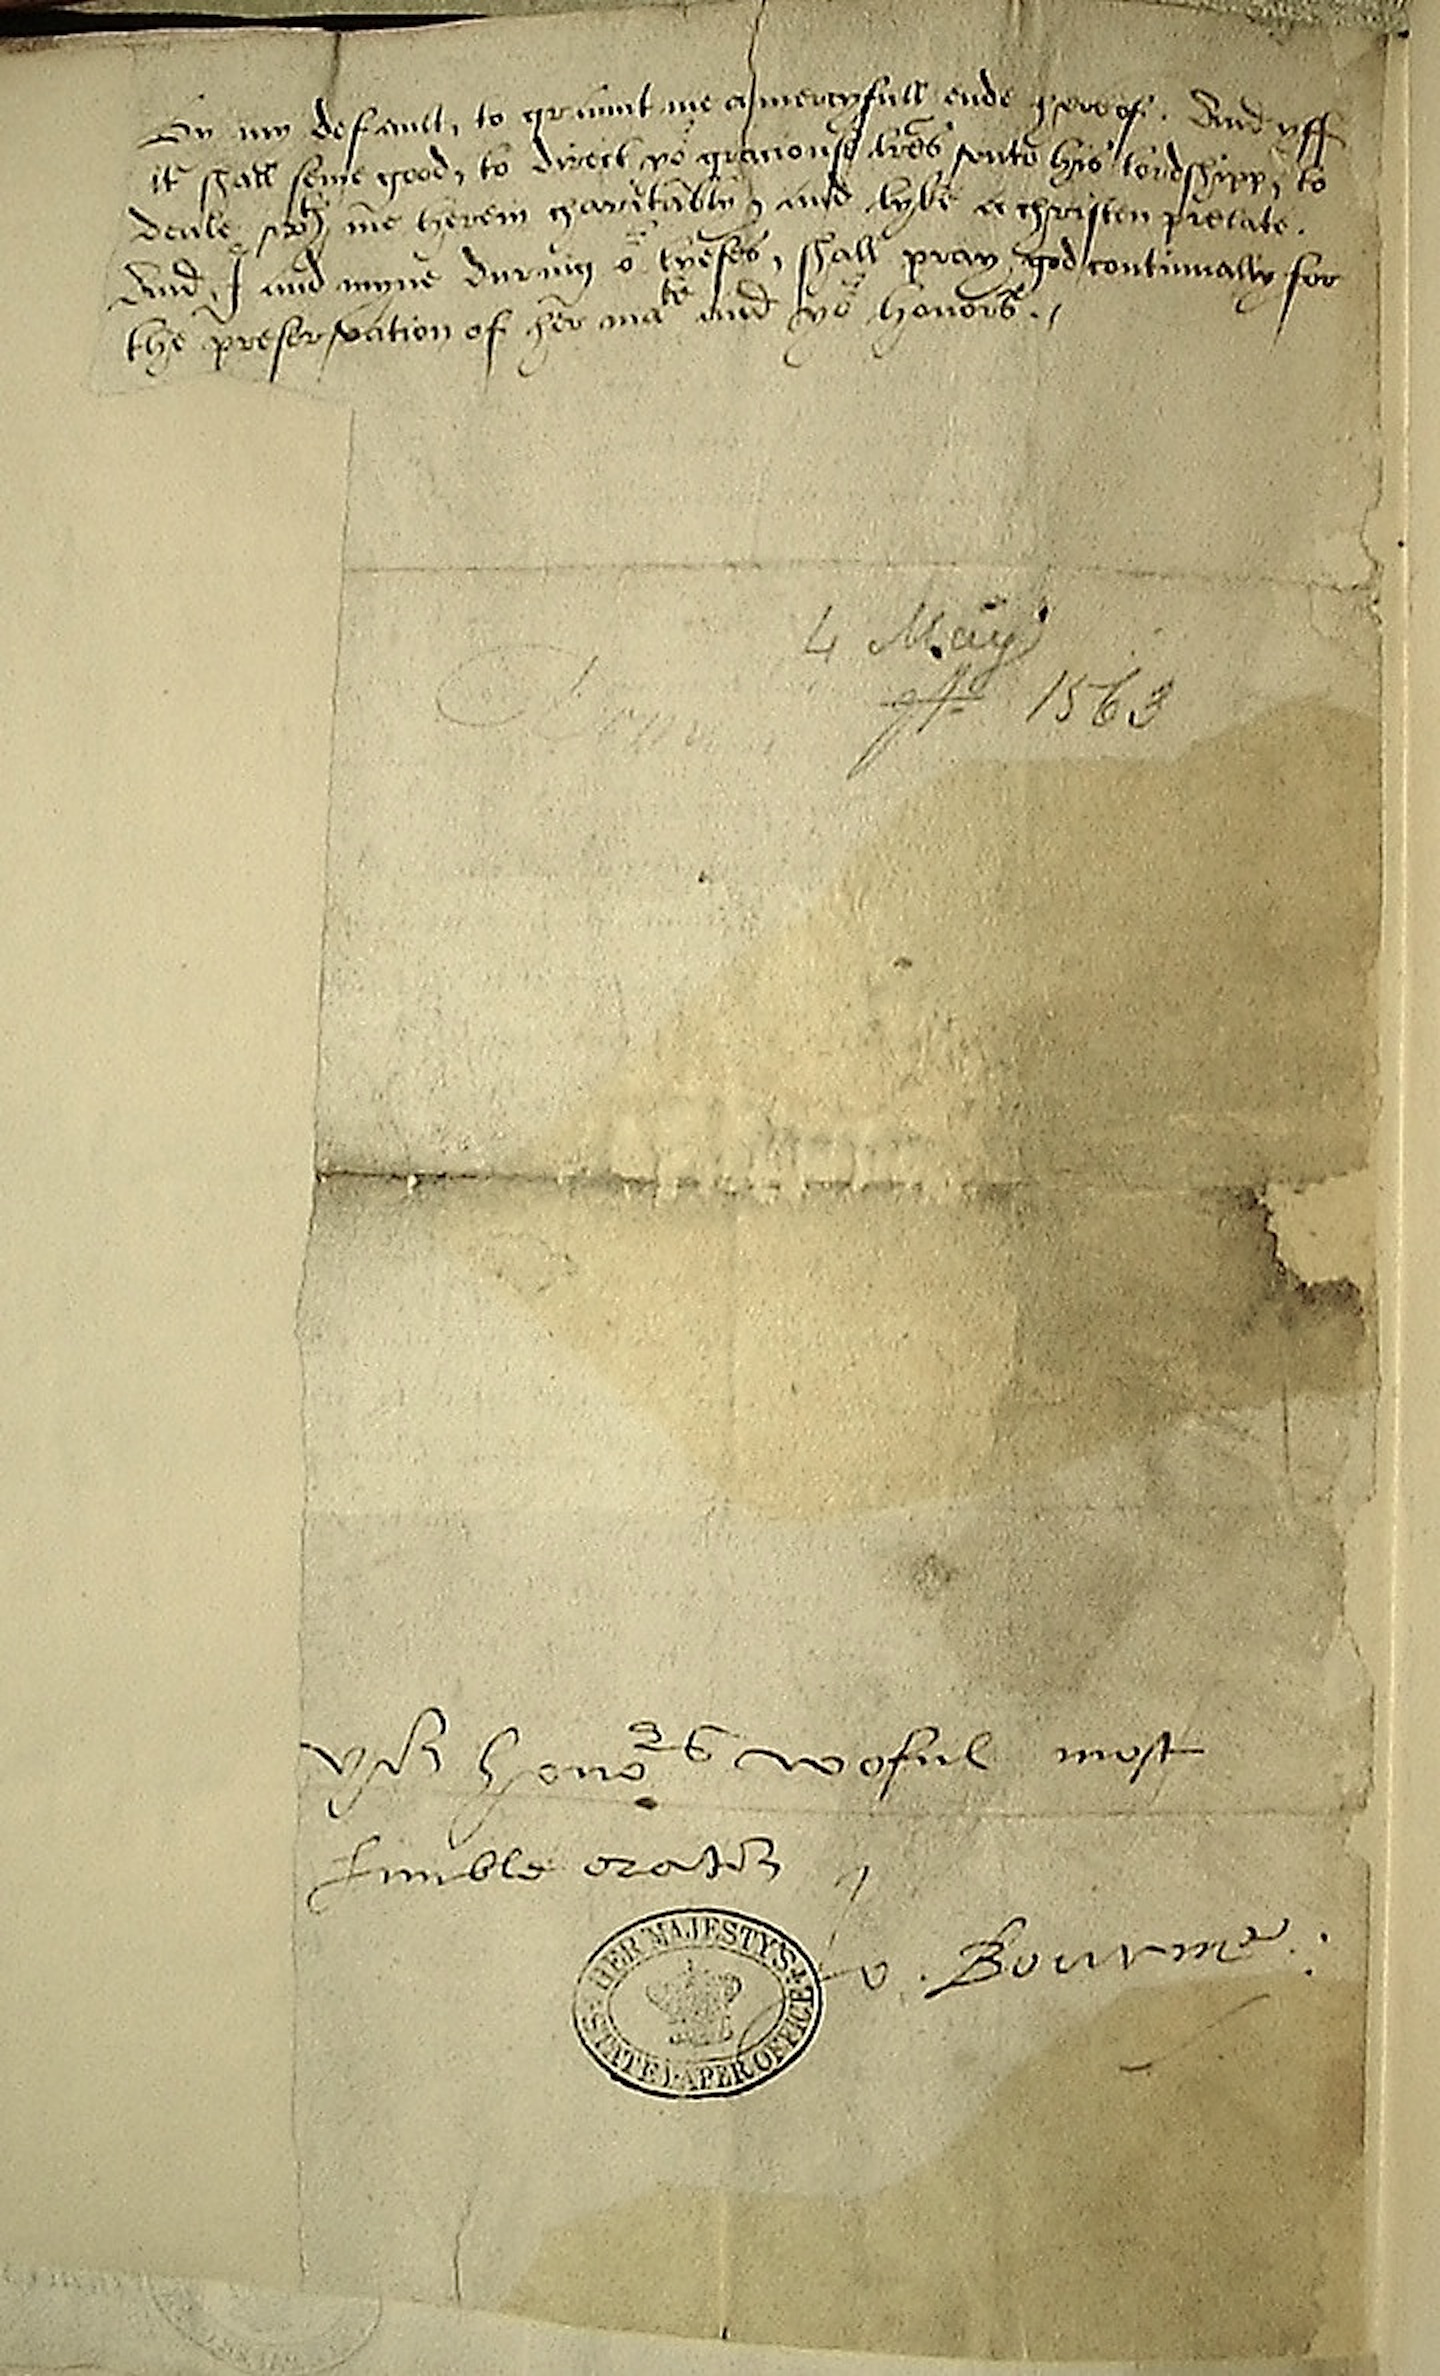 By my default, to graunt me a mercyfull ende hereof. And yff
it shall seme good, to direct yor graciouse lres vnto his lordshipp, to
deale wth me herein charitably, and lyke a christen prelate.
And I and myne during or lyefes, shall pray god continually for
the preservation of her matie and yor honors./
4 May
Ao 1563
yor honors woful most
humble orator
Jo. Bourne
HER MAJESTY'S STATE PAPER OFFICE